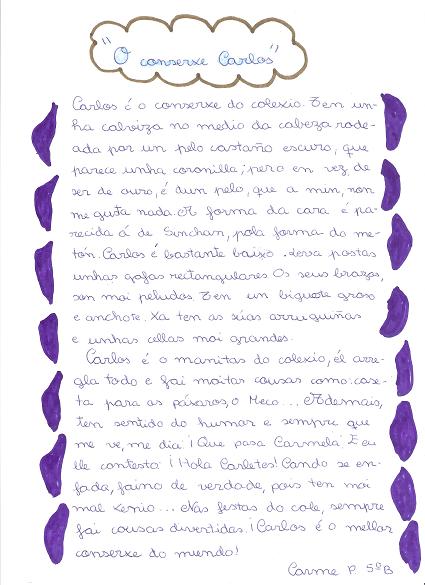 "O conserxe Carlos"
Carlos é o conserxe do colexio. Ten un-
ha calviza no medio da cabeza rode-
ada por un pelo castaño escuro, que
parece unha coronilla; pero en vez de
ser de ouro, é dun pelo, que a min, non
me gusta nada. A forma da cara é pa-
recida á de Sinchan, pola forma do me-
tón. Carlos é bastante baixo. Leva postas
unhas gafas rectangulares. Os seus brazos,
son moi peludos. Ten un bigote groso
e anchote. Xa ten as súas arruguiñas
e unhas cellas moi grandes.
Carlos é o manitas do colexio, él arre-
gla todo e fai moitas cousas como: case-
ta para os páxaros, o Meco... Ademais,
ten sentido do humor e sempre que
me ve, me di: ¡Que pasa Carmela! E eu
lle contesto: ¡Hola Carletes! Cando se en-
fada, faino de verdade, pois ten moi
mal xenio... Nas festas do cole, sempre
fai cousas divertidas. ¡Carlos é o mellor
conserxe do mundo!
Carme P. 5ºB